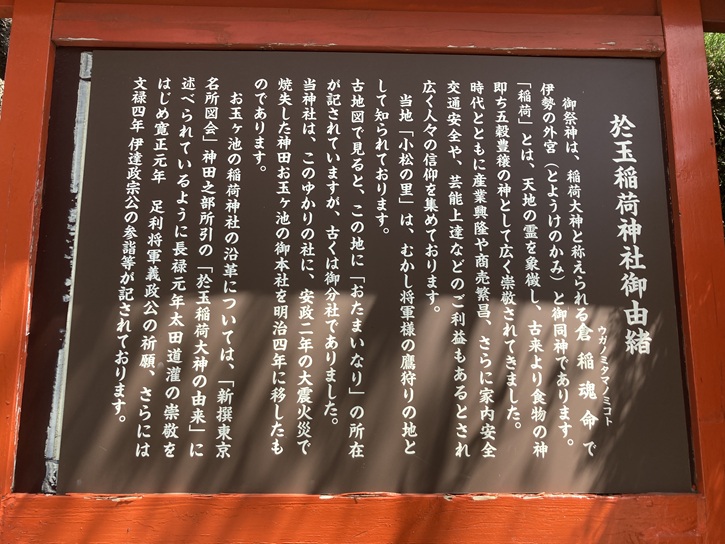 於玉稲荷神社御由緒
御祭神は、稲荷大神と称えられる倉稲魂命で
ウガノミタマノミコト
伊勢の外宮（とようけのかみ）と御同神であります。
「稲荷」とは、天地の霊を象徴し、古来より食物の神
即ち五穀豊穣の神として広く崇敬されてきました。
時代とともに産業興隆や商売繁昌、さらに家内安全
交通安全や、芸能上達などのご利益もあるとされ
広く人々の信仰を集めております。
当地「小松の里」は、むかし将軍様の鷹狩りの地と
して知られております。
古地図で見ると、この地に「おたまいなり」の所在
が記されていますが、古くは御分社でありました。
当神社は、このゆかりの社に、安政二年の大震火災で
焼失した神田お玉ヶ池の御本社を明治四年に移したも
のであります。
お玉ヶ池の稲荷神社の沿革については、「新撰東京
名所図会」神田之部所引の「於玉稲荷大神の由来」に
述べられているように長禄元年太田道灌の崇敬を
はじめ寛正元年　足利将軍義政公の祈願、さらには
文禄四年 伊達政宗公の参詣等が記されております。